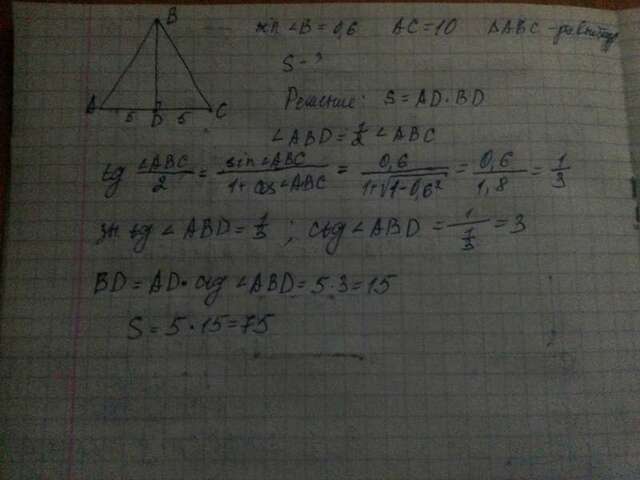 B
sin ∠B = 0,6 AC = 10 ΔABC -
S - ?
Решение: S = AD · BD
A 5 D 5 C
∠ABD = 1/2 ∠ABC
tg ∠ABC/2 = sin∠ABC/(1 + cos∠ABC) = 0,6/(1+√(1-0,6²)) = 0,6/1,8 = 1/3
зн tg ∠ABD = 1/3 ; ctg ∠ABD = 1/(1/3) = 3
BD = AD · ctg ∠ABD = 5 · 3 = 15
S = 5 · 15 = 75